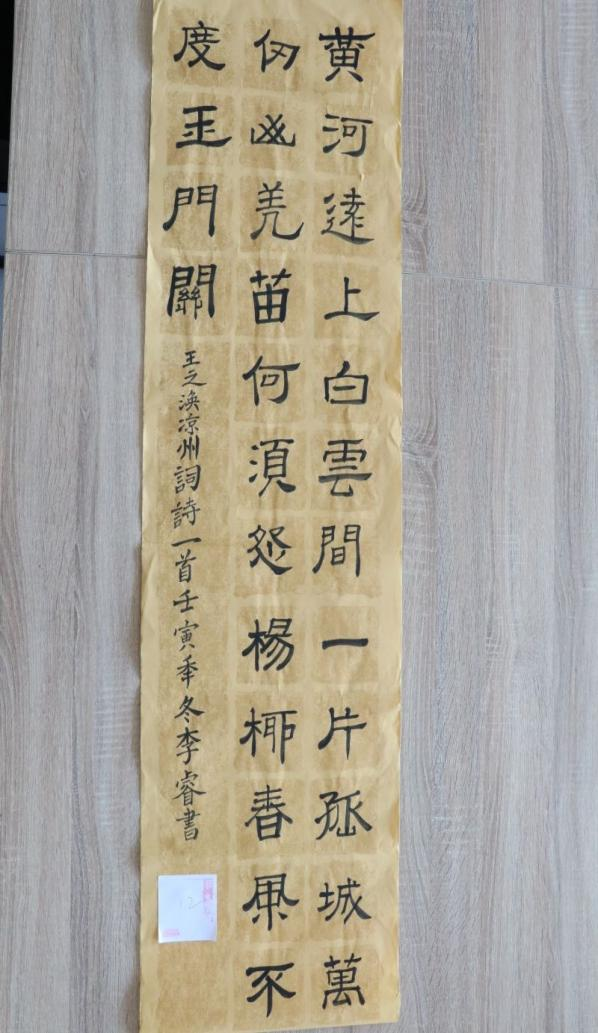 黄河遠上白雲間一片孤城萬
仞山羌笛何須怨楊柳春風不
度玉門關
王之渙凉州詞詩一首壬寅年冬李睿書
12